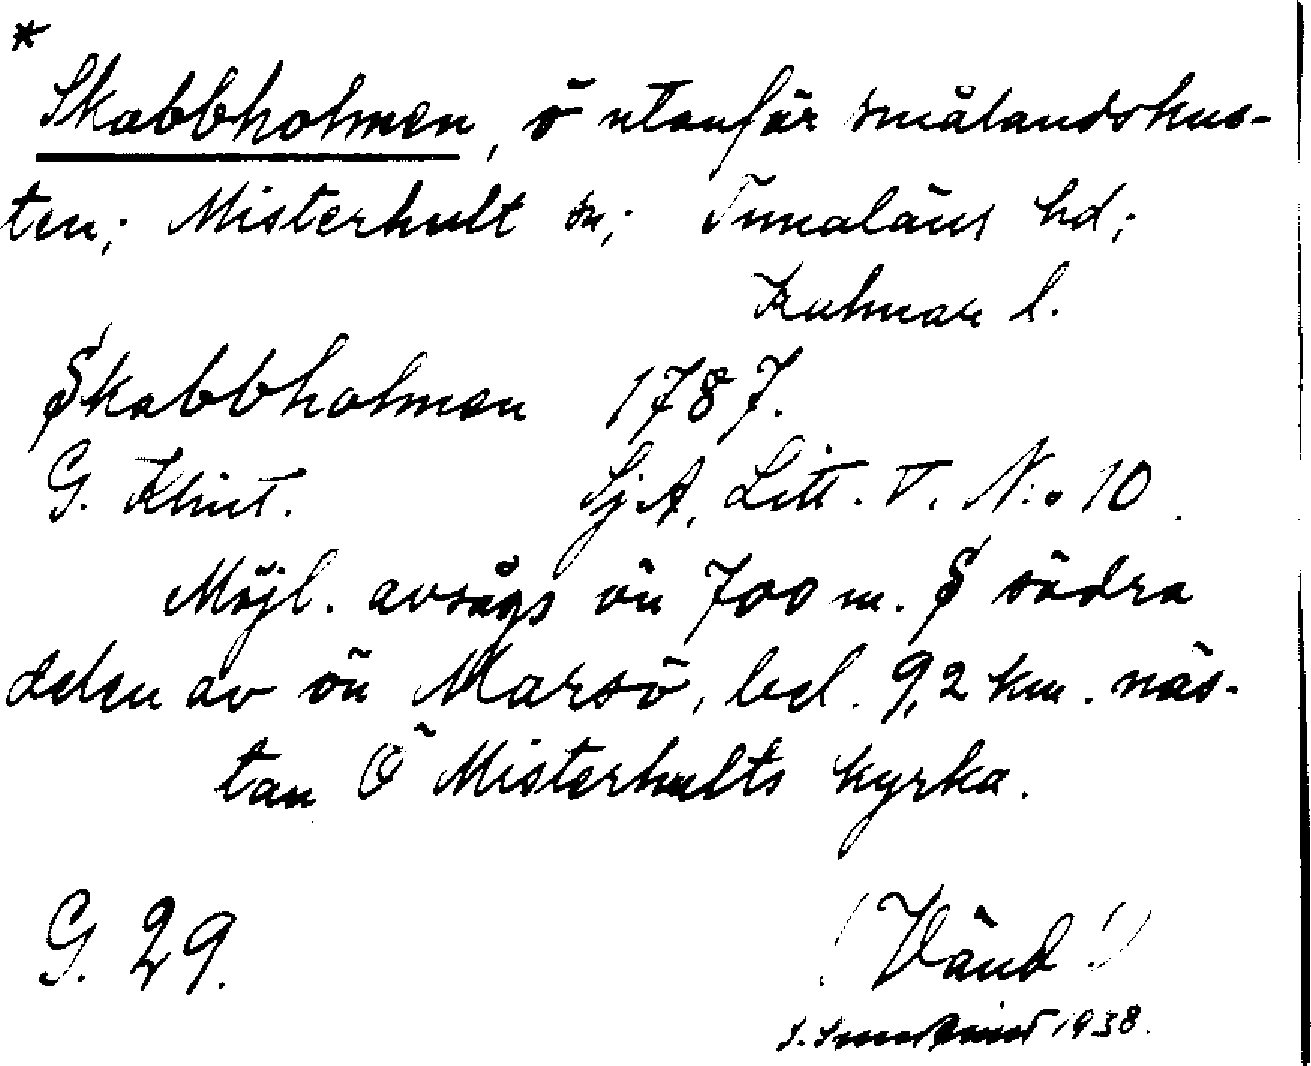 *
Skabbholmen, ö utanför smålandskus-
ten; Misterhult sn; Tunaläns hd;
Kalmar l.
Skabbholmen 1787.
G. Klint. Sj.A. Litt. V. N:o 10.
Möjl. avsågs ön 700 m. S södra
delen av ön Marsö, bel. 9,2 km. näs-
tan Ö Misterhults kyrka.
G. 29. (Vänd!)
1938.